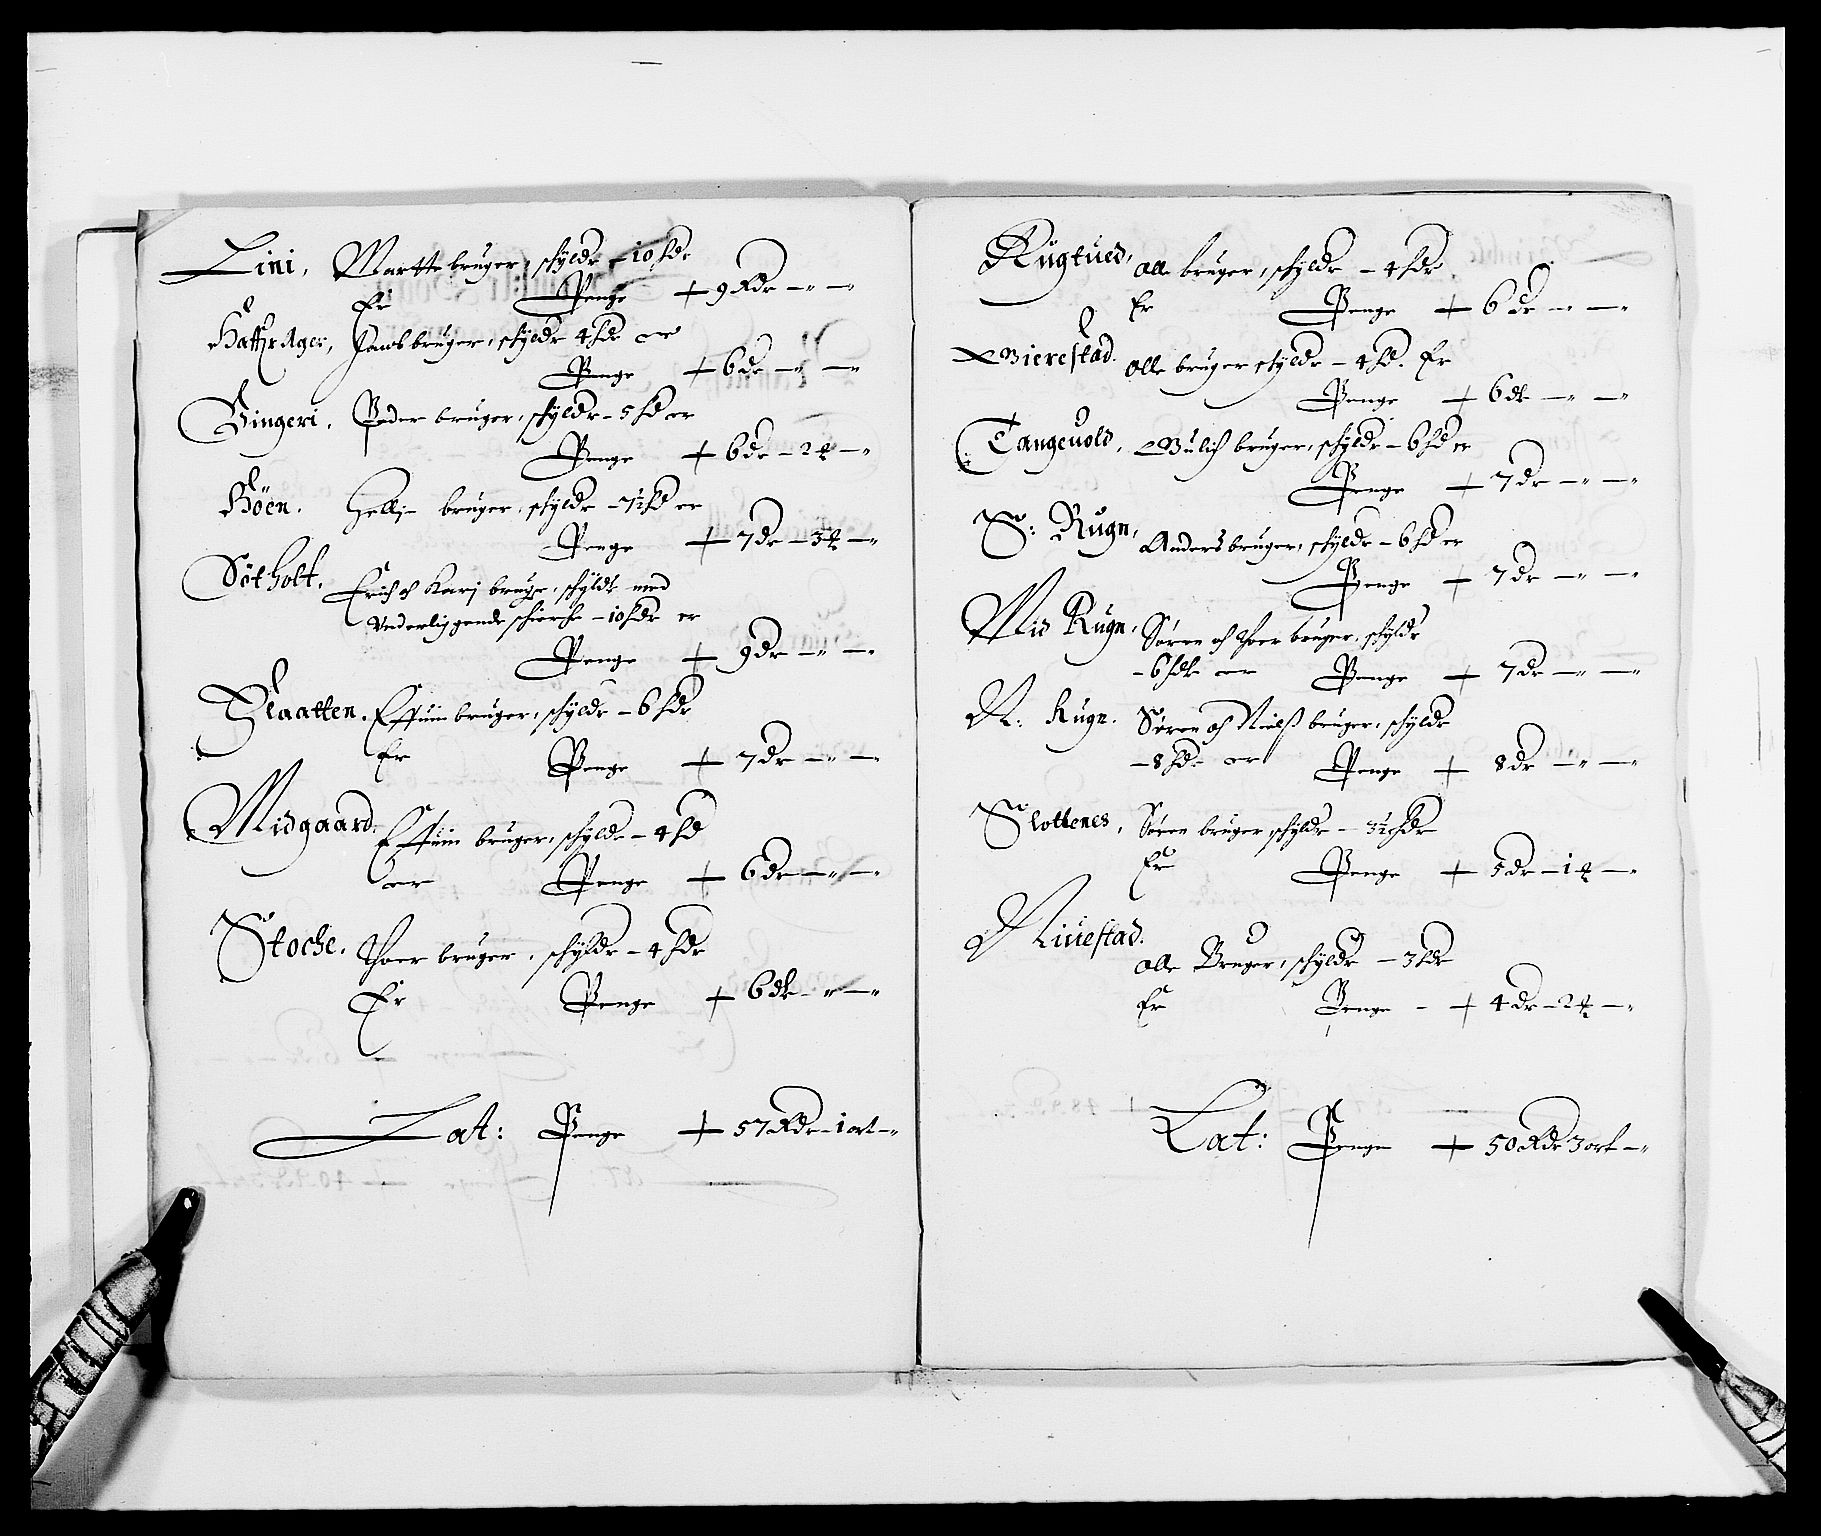 Lini, Martte bruger, schylde – 10 sde
Er Penge + 9 Rdr – " – "
Haffr Ager, Jacob bruger, schylde 4 sde er
Penge + 6 dr – " – "
Gingeri. Peder bruger, schylde – 5 sd er
Penge + 6 dr – 2 ₰ – "
Böen. Hellie bruger, schylde – 7½ sd er
Penge + 7 dr – 3 ₰ – "
Sötholt. Erich och Karj bruger, schylde med
Vnderliggende schierche – 10 sde er
Penge + 9 dr – " – "
Slaatten. Effuin bruger, schylde – 6 sde
Er Penge + 7 dr – " – "
Midgaard. Effuin bruger, schylde – 4 sd
er Penge + 6 dr – " – "
Stoche. Thoer bruger, schylde – 4 sde
Er Penge + 6 dr – " – "
Lat: Penge + 57 Rdr – 1 ort – "
Rugtued, Olle bruger, schylde – 4 sde
Er Penge + 6 dr – " – "
Bierestad. Olle bruger schylde – 4 sd. Er
Penge + 6 dr – " – "
Tangeuold, Wulich bruger, schylde – 6 sd er
Penge + 7 dr – " – "
S: Rugn, Anders bruger, schylde – 6 sd er
Penge + 7 dr – " – "
Mid Rugn, Søren och Thoer bruger, schylde
– 6 sde er Penge + 7 dr – " – "
N. Rugn. Søren och Nielß bruger, schylde
– 8 sde er Penge + 8 dr – " – "
Slottenes, Søren bruger, schylde – 3½ sde
Er Penge + 5 dr – 1 ₰ – "
Niuestad.
Olle Bruger, schylde – 3 sde
Er Penge – + 4 dr – 2 ₰ – "
Lat: Penge + 50 Rdr 3 ort – "